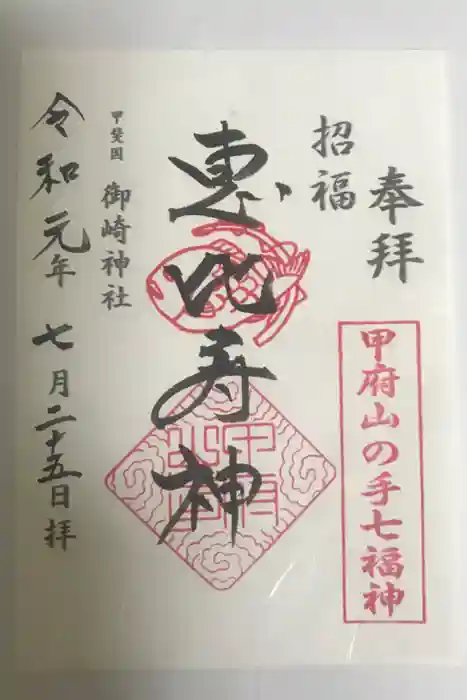 奉拝
甲府山の手七福神
招福
恵比寿神
甲斐国
御崎神社
令和元年七月二十五日拝